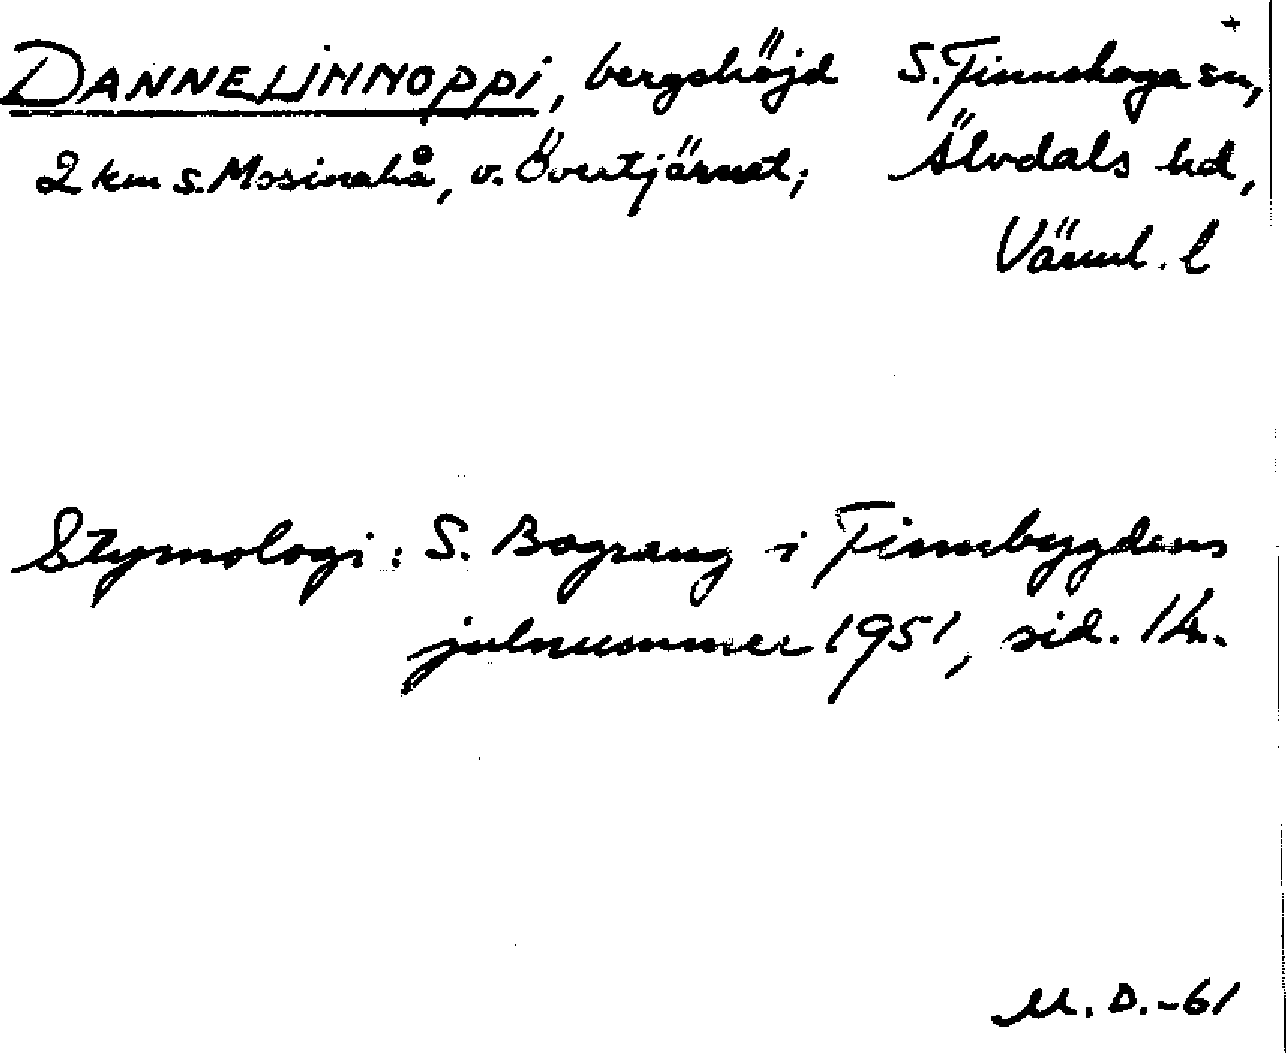 DANNELINNOPPI, bergshöjd S. Finnskoga sn,
2 km s. Mosinahå, v. Övertjärnet; Älvdals hd,
Värml. l
Etymologi: S. Bograng i Finnbygdens
julnummer 1951, sid. 14.
M. D. -61